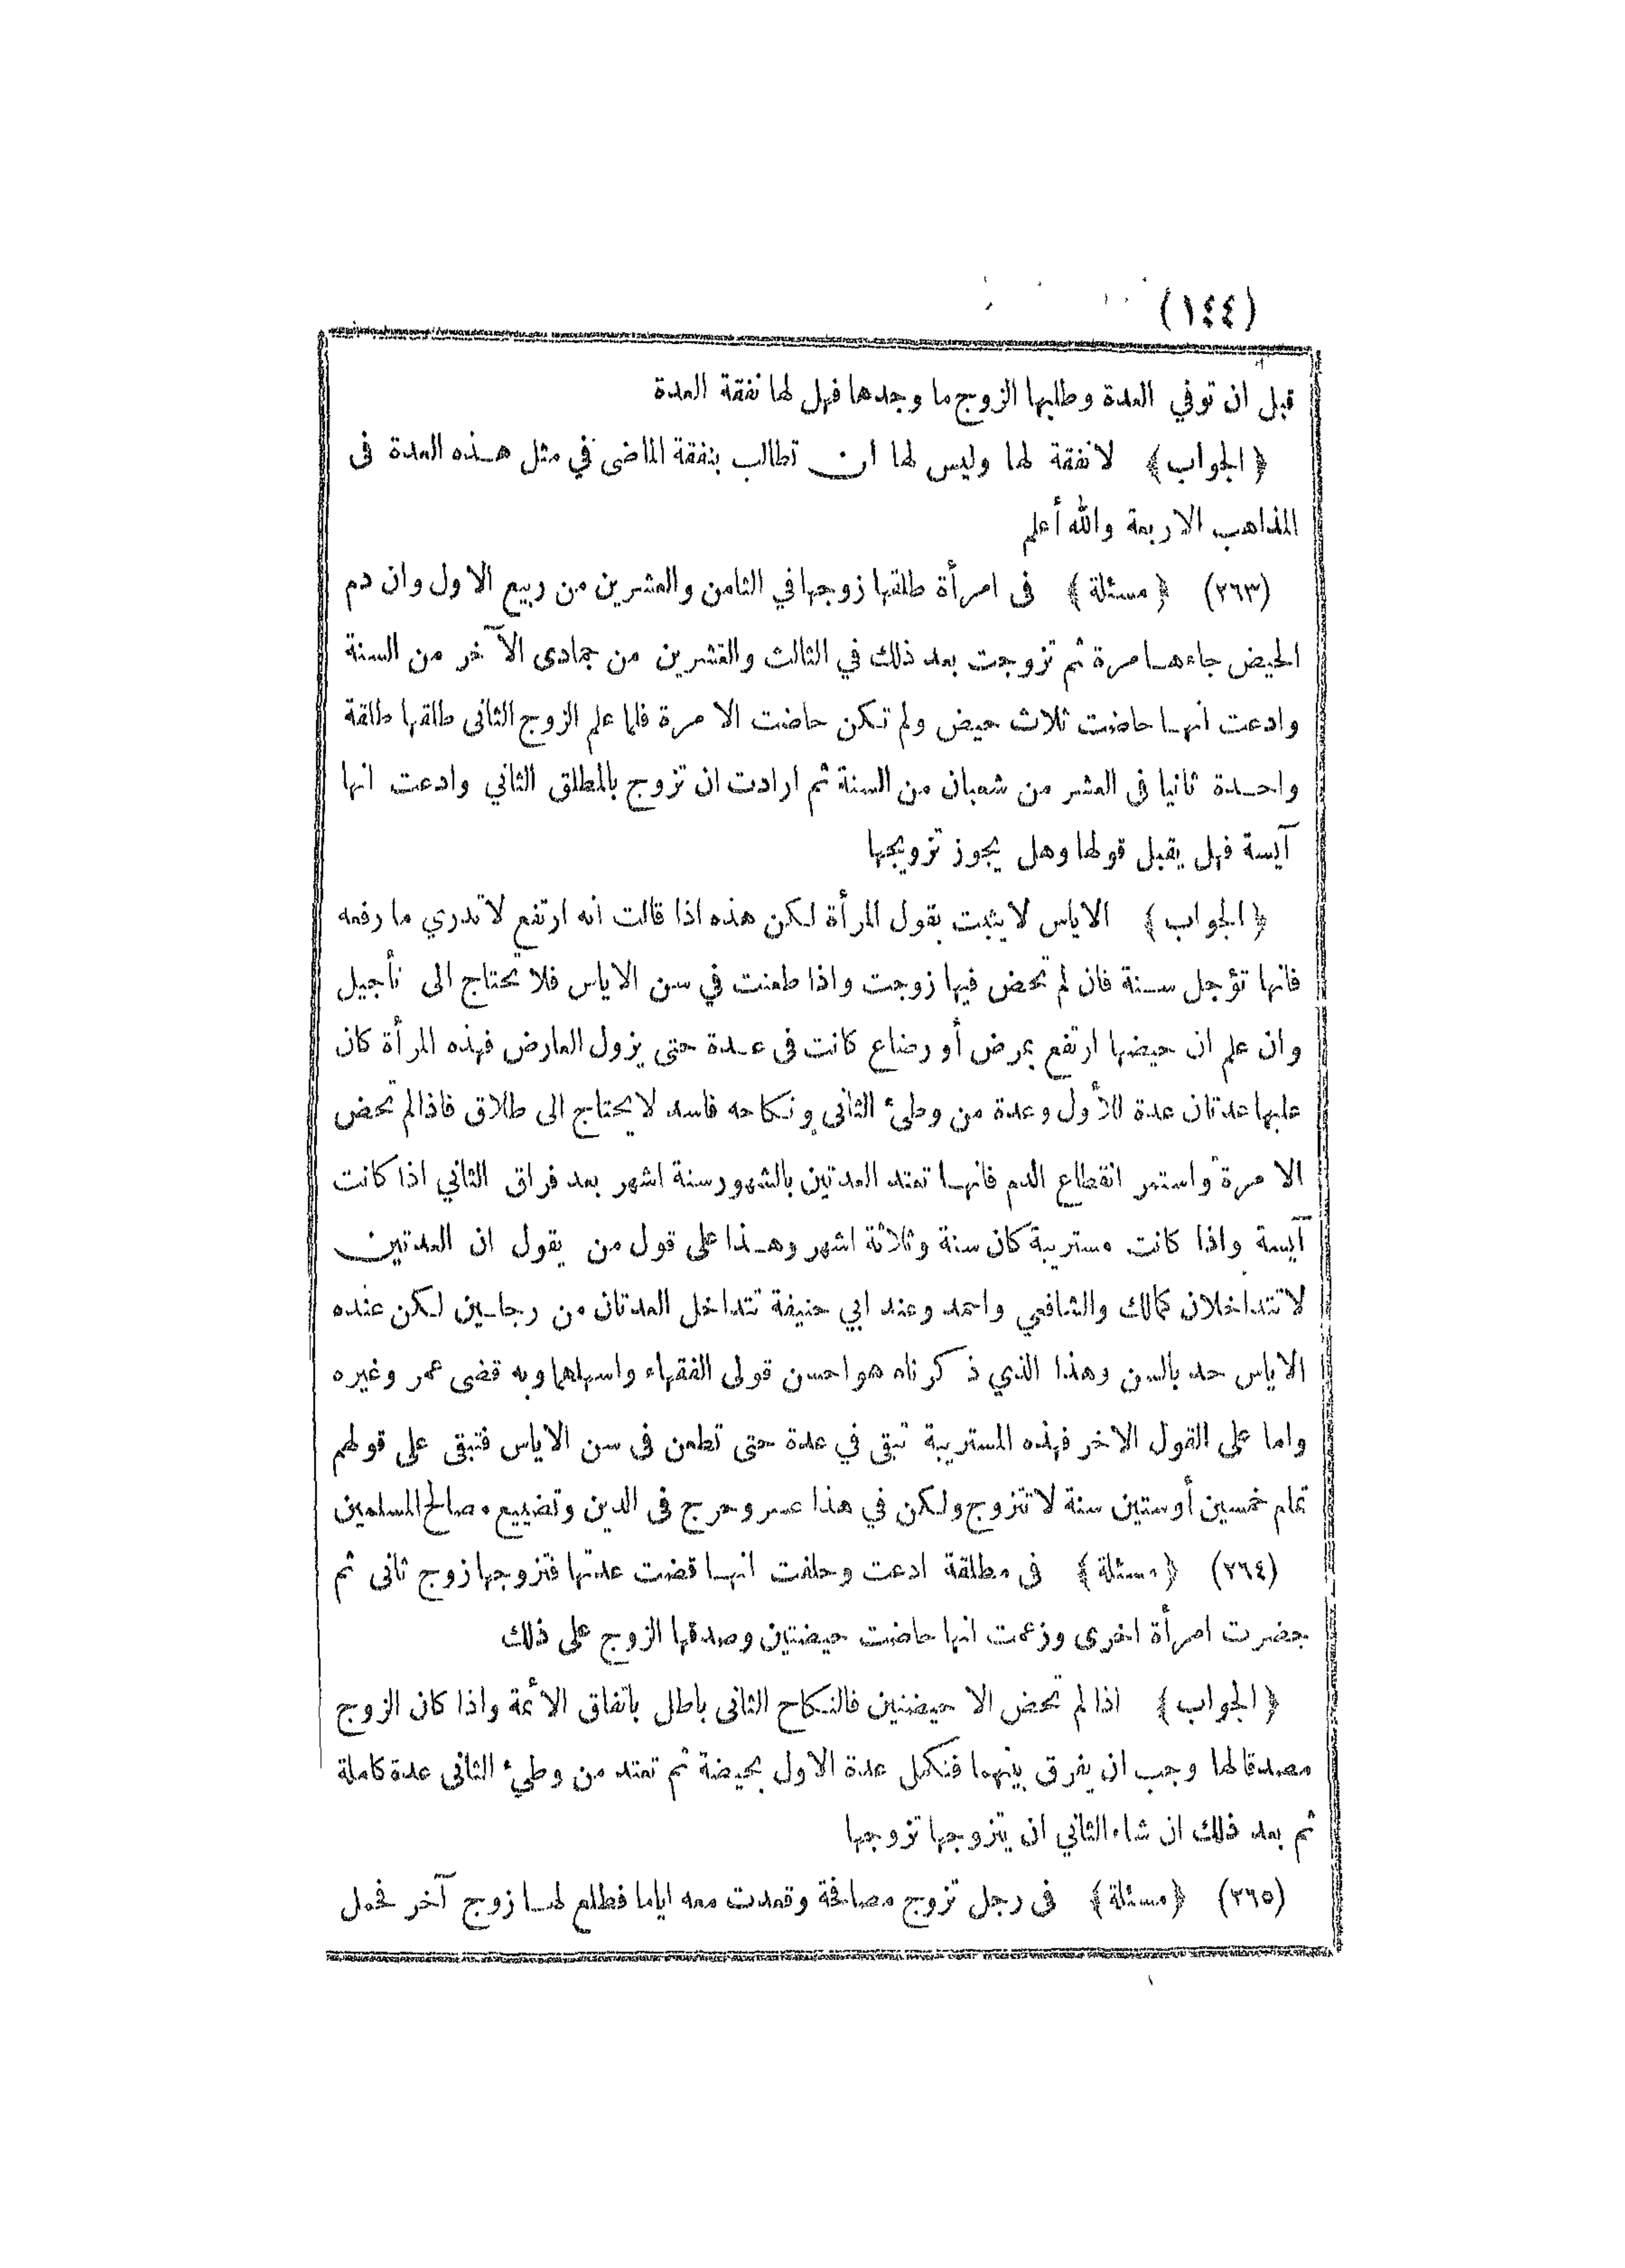 (١٤٤)
قبل ان توفي العدة وطلبها الزوج ما وجدها فهل لها نفقة العدة
﴿ الجواب ﴾ لا نفقة لها وليس لها ان تطالب بنفقة الماضى في مثل هذه العدة فى
المذاهب الاربعة والله أعلم
(٢٦٣) ﴿ مسئلة ﴾ فى امرأة طلقها زوجها في الثامن والعشرين من ربيع الاول وان دم
الحيض جاءها مرة ثم تزوجت بعد ذلك في الثالث والعشرين من جمادى الآخر من السنة
وادعت انها حاضت ثلاث حيض ولم تكن حاضت الا مرة فلما علم الزوج الثانى طلقها طلقة
واحدة ثانيا فى العشر من شعبان من السنة ثم ارادت ان تزوج بالمطلق الثاني وادعت انها
آيسة فهل يقبل قولها وهل يجوز تزويجها
﴿ الجواب ﴾ الاياس لا يثبت بقول المرأة لكن هذه اذا قالت انه ارتفع لا تدري ما رفعه
فانها تؤجل سنة فان لم تحض فيها زوجت واذا طعنت في سن الاياس فلا تحتاج الى تأجيل
وان علم ان حيضها ارتفع بمرض أو رضاع كانت فى عدة حتى يزول العارض فهذه المرأة كان
عليها عدتان عدة للأول وعدة من وطئ الثانى ونكاحه فاسد لا يحتاج الى طلاق فاذا لم تحض
الا مرة واستمر انقطاع الدم فانها تعتد العدتين بالشهور ستة اشهر بعد فراق الثاني اذا كانت
آيسة واذا كانت مستريبة كان سنة وثلاثة اشهر وهذا على قول من يقول ان العدتين
لا تتداخلان كمالك والشافعي واحمد وعند ابي حنيفة تتداخل العدتان من رجلين لكن عنده
الاياس حد بالسن وهذا الذي ذكرناه هو احسن قولى الفقهاء واسهلهما وبه قضى عمر وغيره
واما على القول الاخر فهذه المستريبة تبقى في عدة حتى تطعن فى سن الاياس فتبقى على قولهم
تمام خمسين أو ستين سنة لا تتزوج ولكن في هذا عسر وحرج فى الدين وتضييع مصالح المسلمين
(٢٦٤) ﴿ مسئلة ﴾ فى مطلقة ادعت وحلفت انها قضت عدتها فتزوجها زوج ثانى ثم
حضرت امرأة اخرى وزعمت انها حاضت حيضتين وصدقها الزوج على ذلك
﴿ الجواب ﴾ اذا لم تحض الا حيضتين فالنكاح الثانى باطل باتفاق الأئمة واذا كان الزوج
مصدقا لها وجب ان يفرق بينهما فتكمل عدة الاول بحيضة ثم تعتد من وطئ الثانى عدة كاملة
ثم بعد ذلك ان شاء الثاني ان يتزوجها تزوجها
(٢٦٥) ﴿ مسئلة ﴾ فى رجل تزوج مصافحة وقعدت معه اياما فطلع لها زوج آخر فحمل